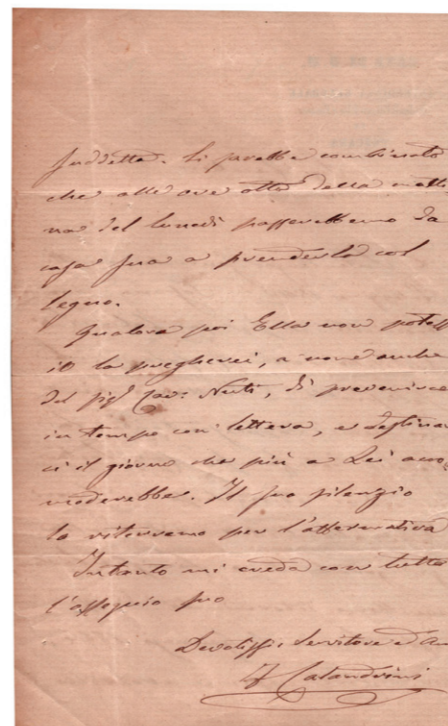 suddetta. Si sarebbe combinato
che alle ore otto della matti
na del lunedì passerebbemo da
casa sua a prenderla col
legno.
Qualora poi Ella non potess
io la pregherei, a nome anche
del Sigʳ Cav: Nuti, di prevenirce
in tempo con lettera, e destinar
ci il giorno che più a Lei acco
moderebbe. Il suo silenzio
lo riterremo per l'affermativa
Intanto mi creda con tutto
l'ossequio suo
Devotissº: Servitore ed Am
F Calandrini